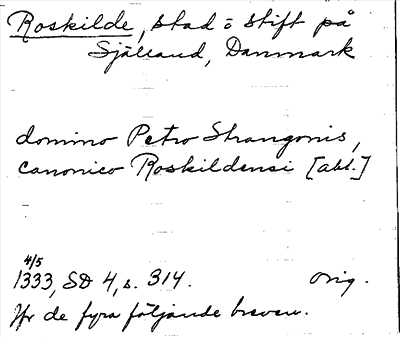 Roskilde, stad o stift på
Själland, Danmark
domino Petro Strangonis,
canonico Roskildensi [abl.]
4/5
1333, SD 4, s. 314. orig.
Jfr de fyra följande breven.